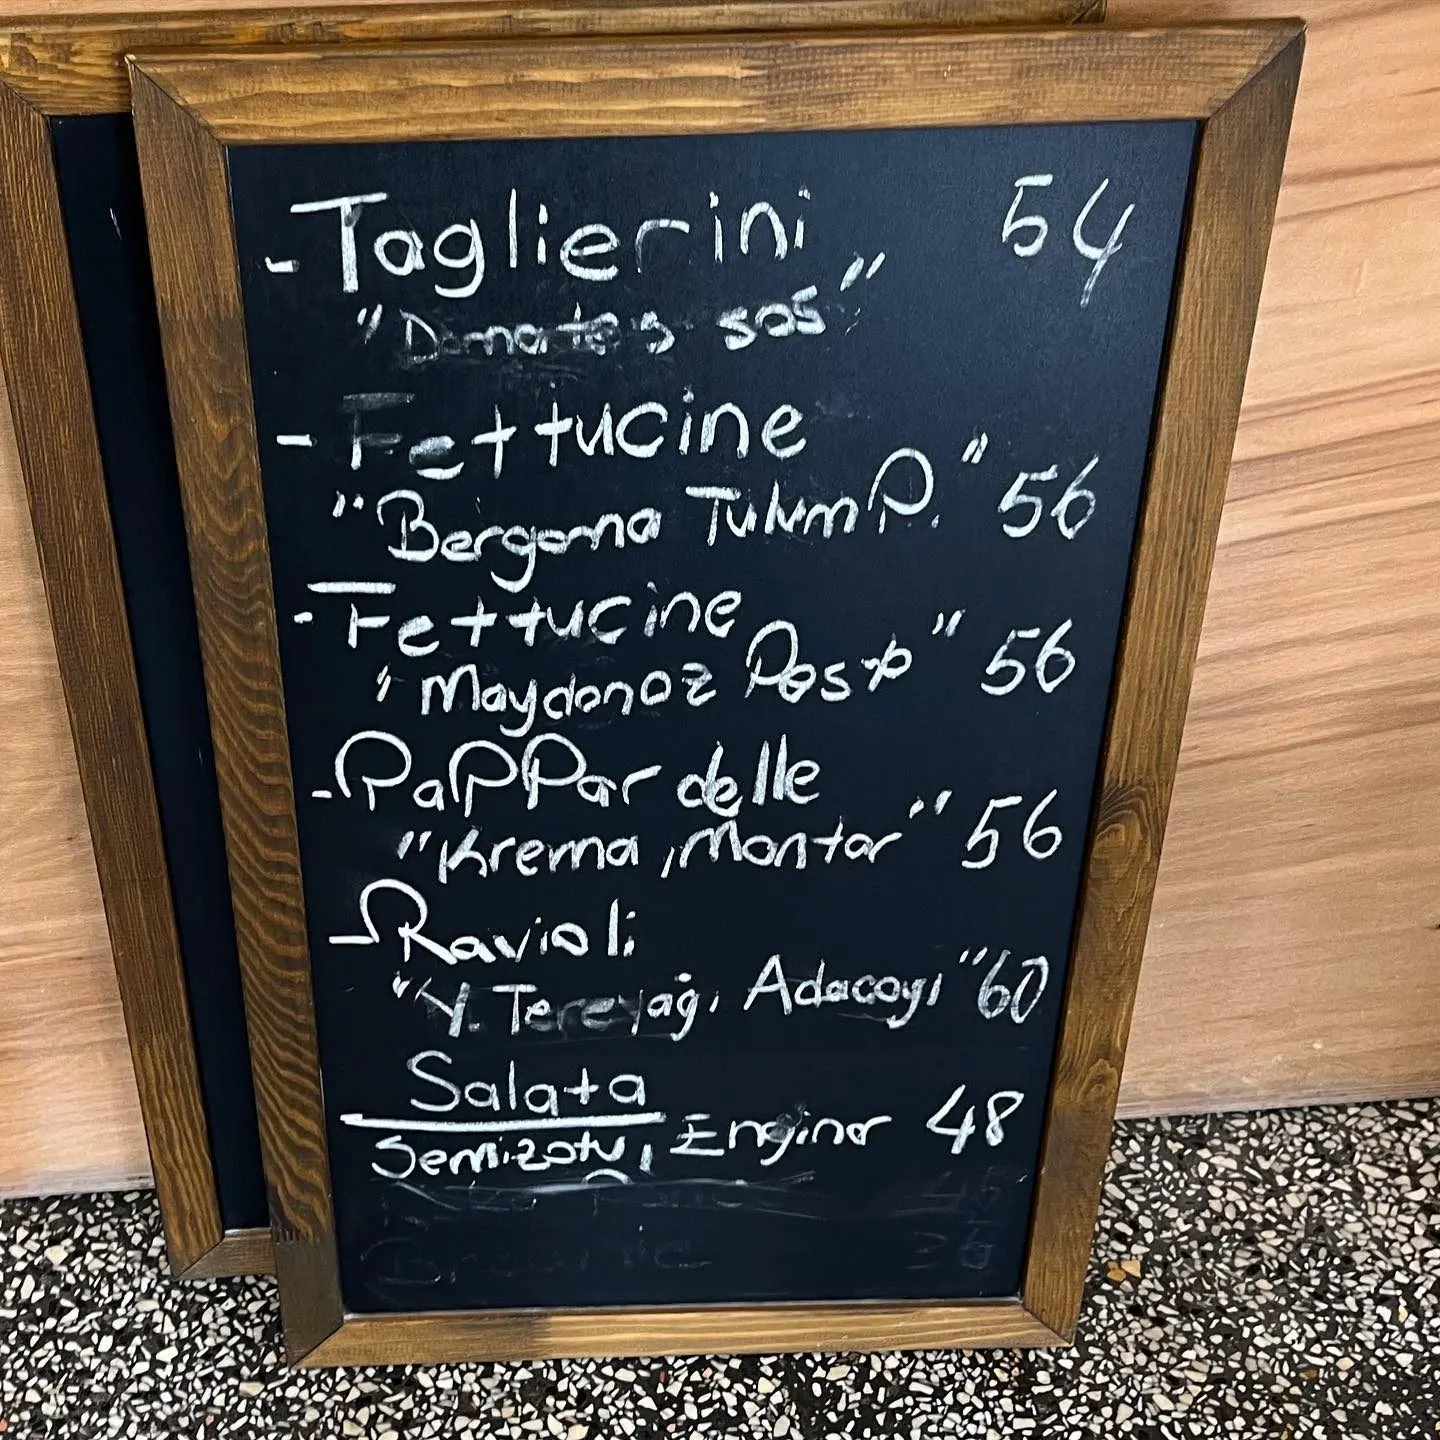 - Taglierini 54
"Domates sos"
- Fettucine
"Bergama Tulum P." 56
- Fettucine
"Maydonoz Pesto" 56
- Pappardelle
"Krema, Mantar" 56
- Ravioli
"Y. Tereyağı, Adaçayı" 60
Salata
Semizotu, Enginar 48